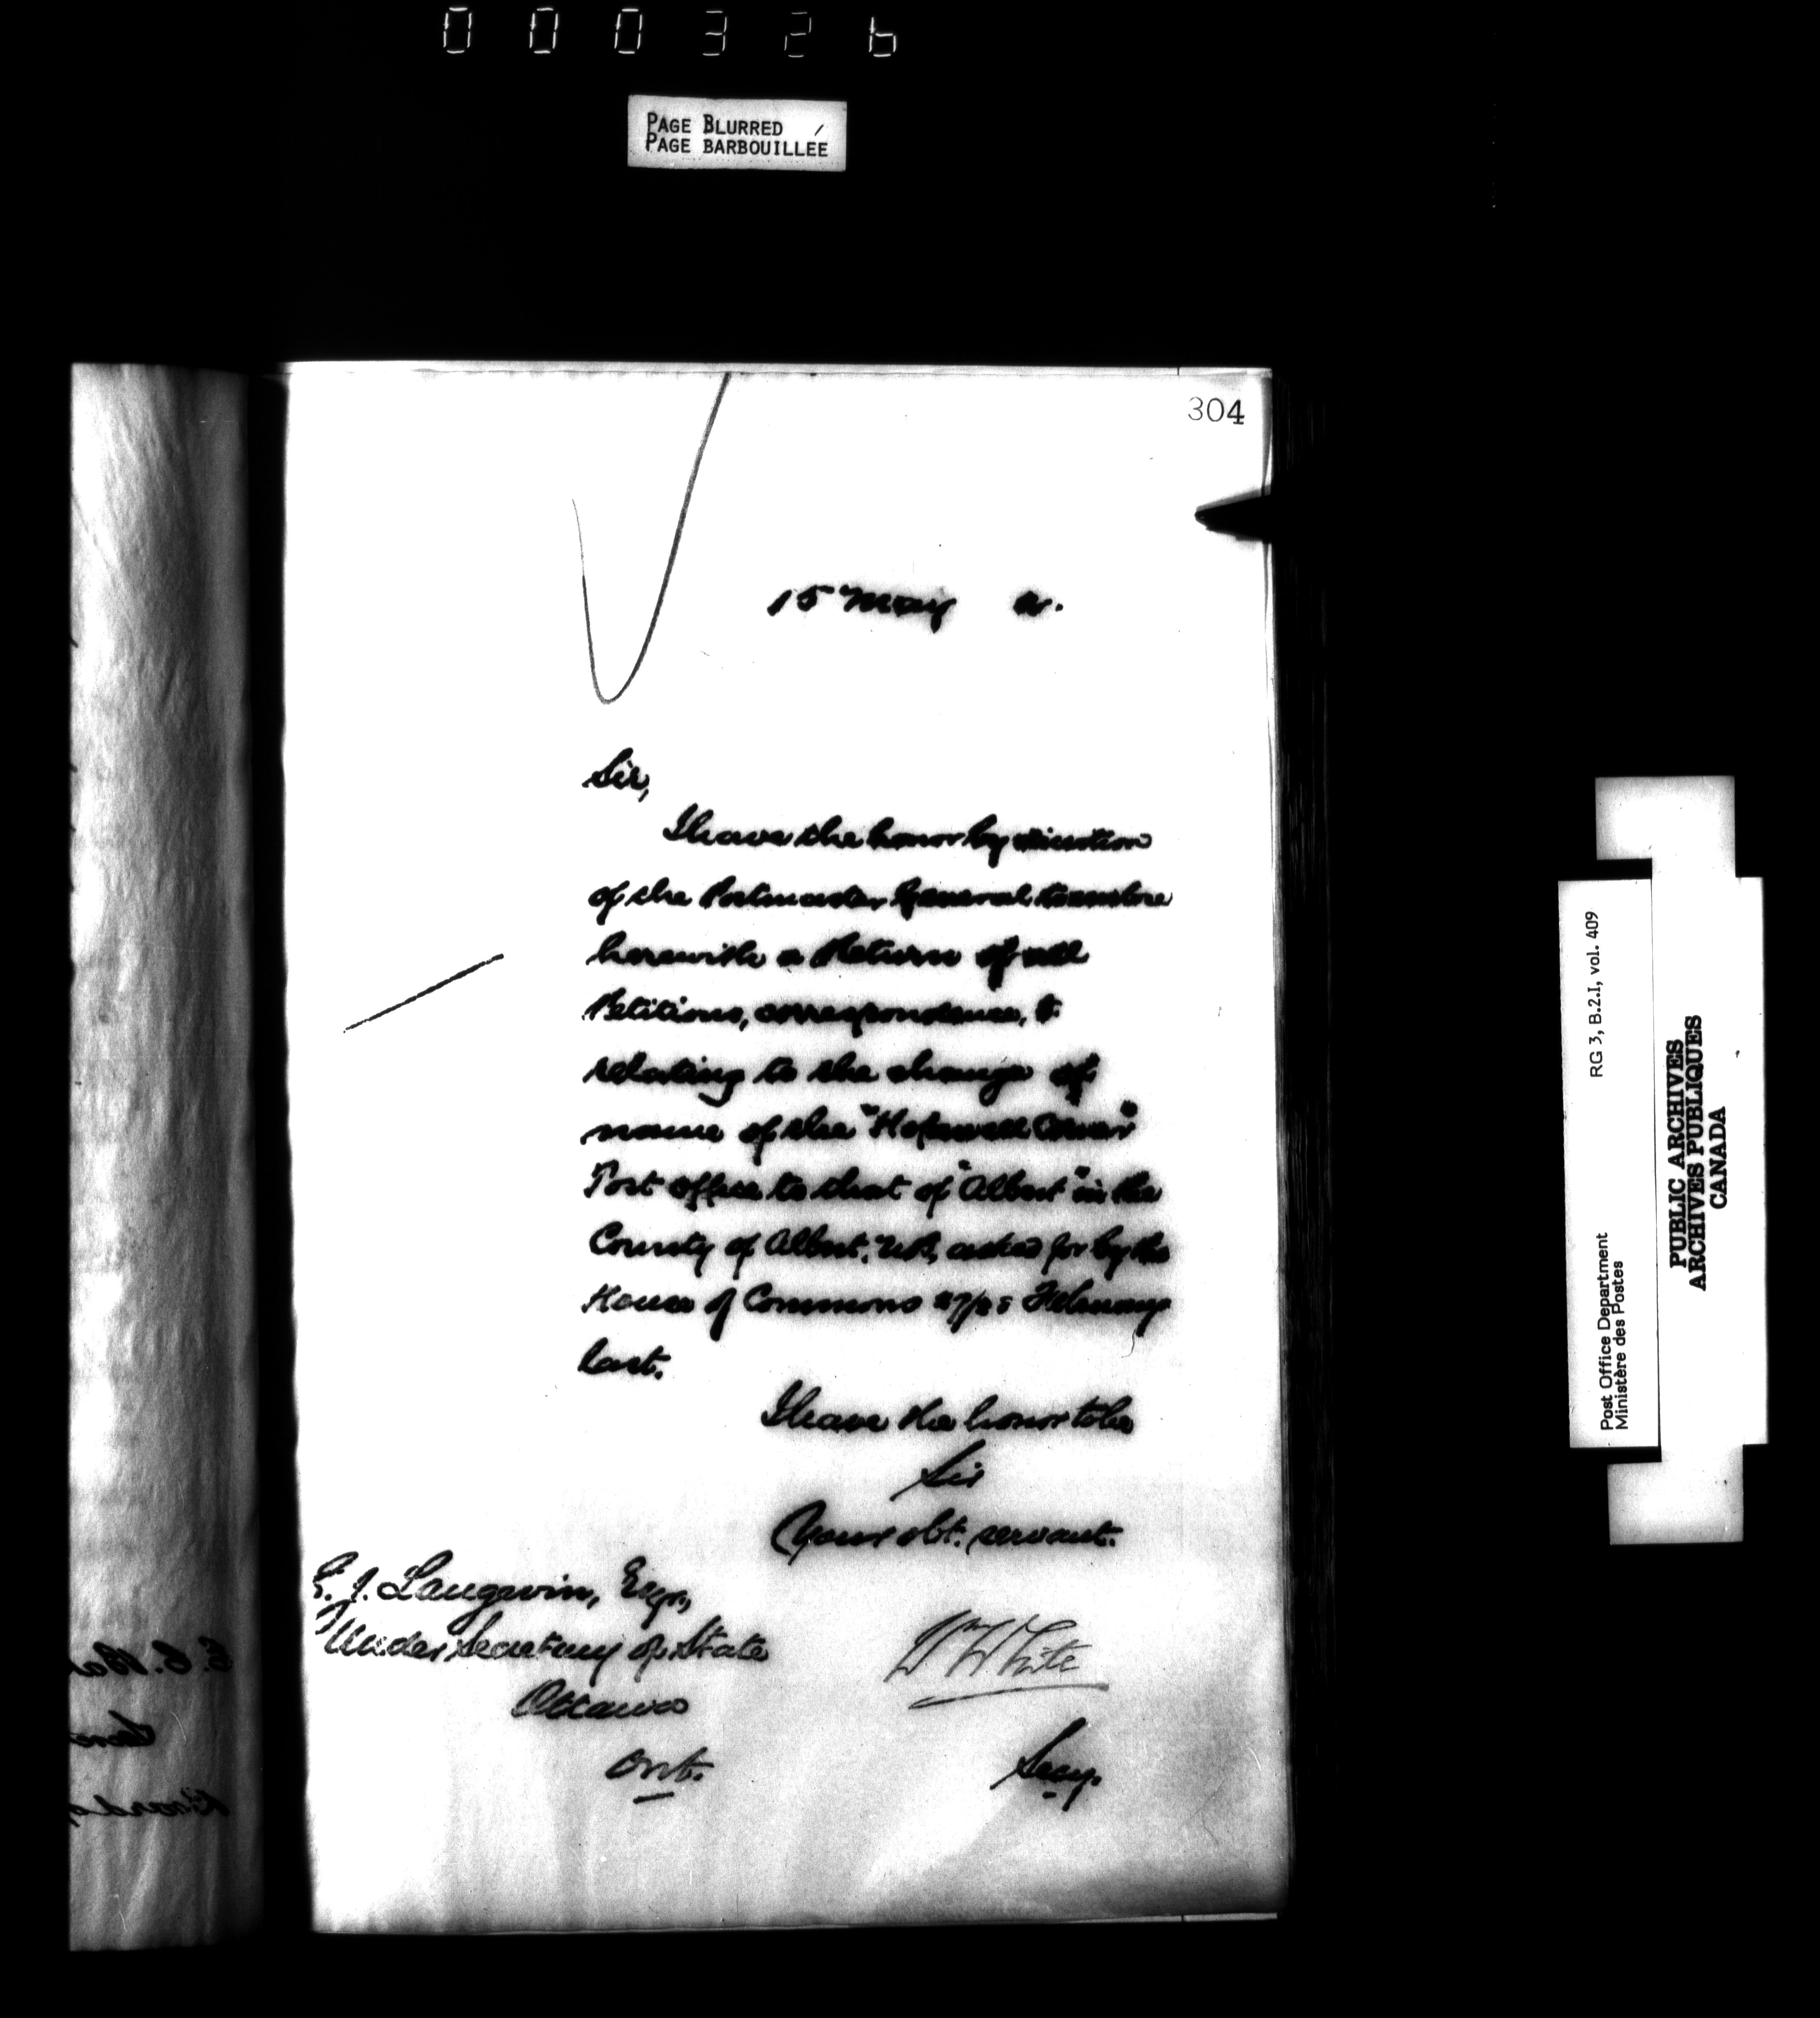 000326
PAGE BLURRED
PAGE BARBOUILLÉE
304
15 May
Sir,
I have the honor by direction
of the Postmaster General to enclose
herewith a Return of all
Petitions, correspondence, &
relating to the change of
name of the "Hopewell Corner"
Post office to that of "Albert" in the
County of Albert, N.B, asked for by the
House of Commons February
last.
I have the honor to be
Sir
Your obt. servant.
Wm White
Secy.
G. J. Langevin, Esqr,
Under Secretary of State
Ottawa
Ont.
RG 3, B.2.I, vol. 409
Post Office Department
Ministère des Postes
PUBLIC ARCHIVES
ARCHIVES PUBLIQUES
CANADA